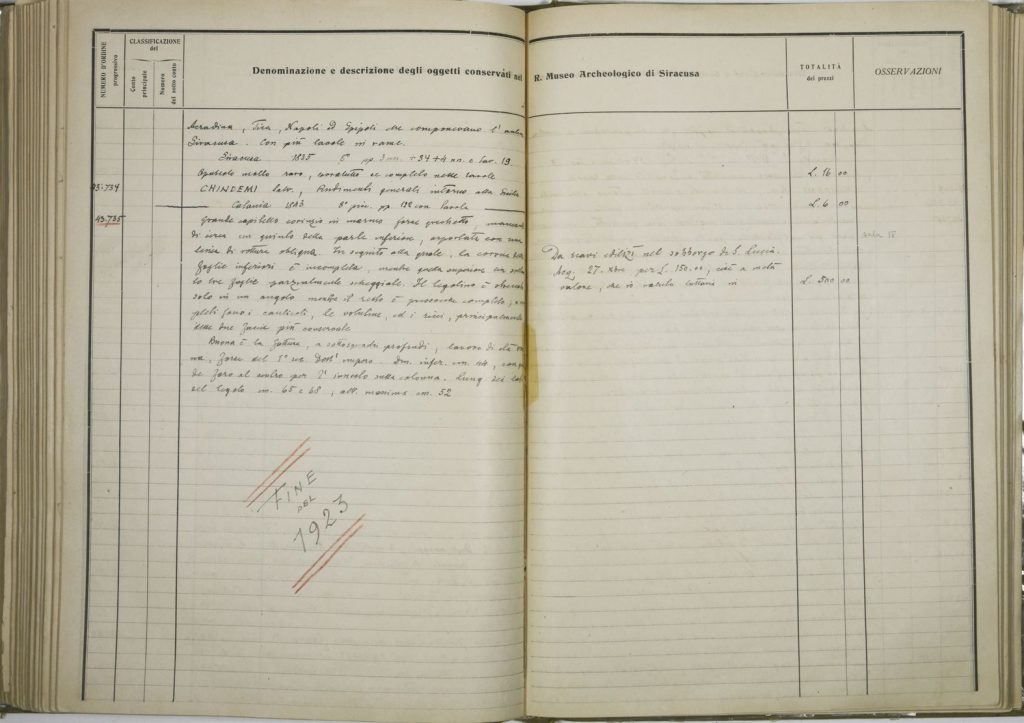 NUMERO D'ORDINE progressivo
CLASSIFICAZIONE del
Conto principale
Numero del sotto conto
Denominazione e descrizione degli oggetti conservati nel R. Museo Archeologico di Siracusa
TOTALITÀ dei prezzi
OSSERVAZIONI
Acradina, Tica, Napoli ed Epipoli che componevano l'antica
Siracusa. Con più tavole in rame.
Siracusa 1835 pp. 3 nn. + 34 + 4 nn. e tav. 19.
Opuscolo molto raro, soprattutto se completo nelle tavole L. 16 00
93.734 CHINDEMI Salv., Rudimenti generali intorno alla
Catania 1843 8° picc. pp. con tavola L. 6 00
43.735 Grande capitello corinzio in marmo forse grechetto, mancante
di circa un quinto della parte inferiore, asportata con una
linea di rottura obliqua. In seguito alla quale, la corona delle
foglie inferiori è incompleta, mentre quella superiore
tre foglie parzialmente scheggiate. Il
solo in un angolo mentre il resto è pressoché completo;
pleti sono i caulicoli, le volutine, ed i ricci, principalmente
delle due facce più conservate.
Buona è la fattura, a sottosquadri profondi, lavoro di età
na, forse del 1° sec. dell'impero. Dm. infer. cm. 44, con
de foro al centro per l'innesto sulla colonna. Lung. dei lati
nel cm. 65 e 68; alt. massima cm. 52
Da scavi edilizi nel sobborgo di S. Lucia.
Acq. 27. Xbre per L. 150.00, cioè a metà
valore, che io valuto tuttavia in L. 500 00
sala IV
FINE
DEL
1923